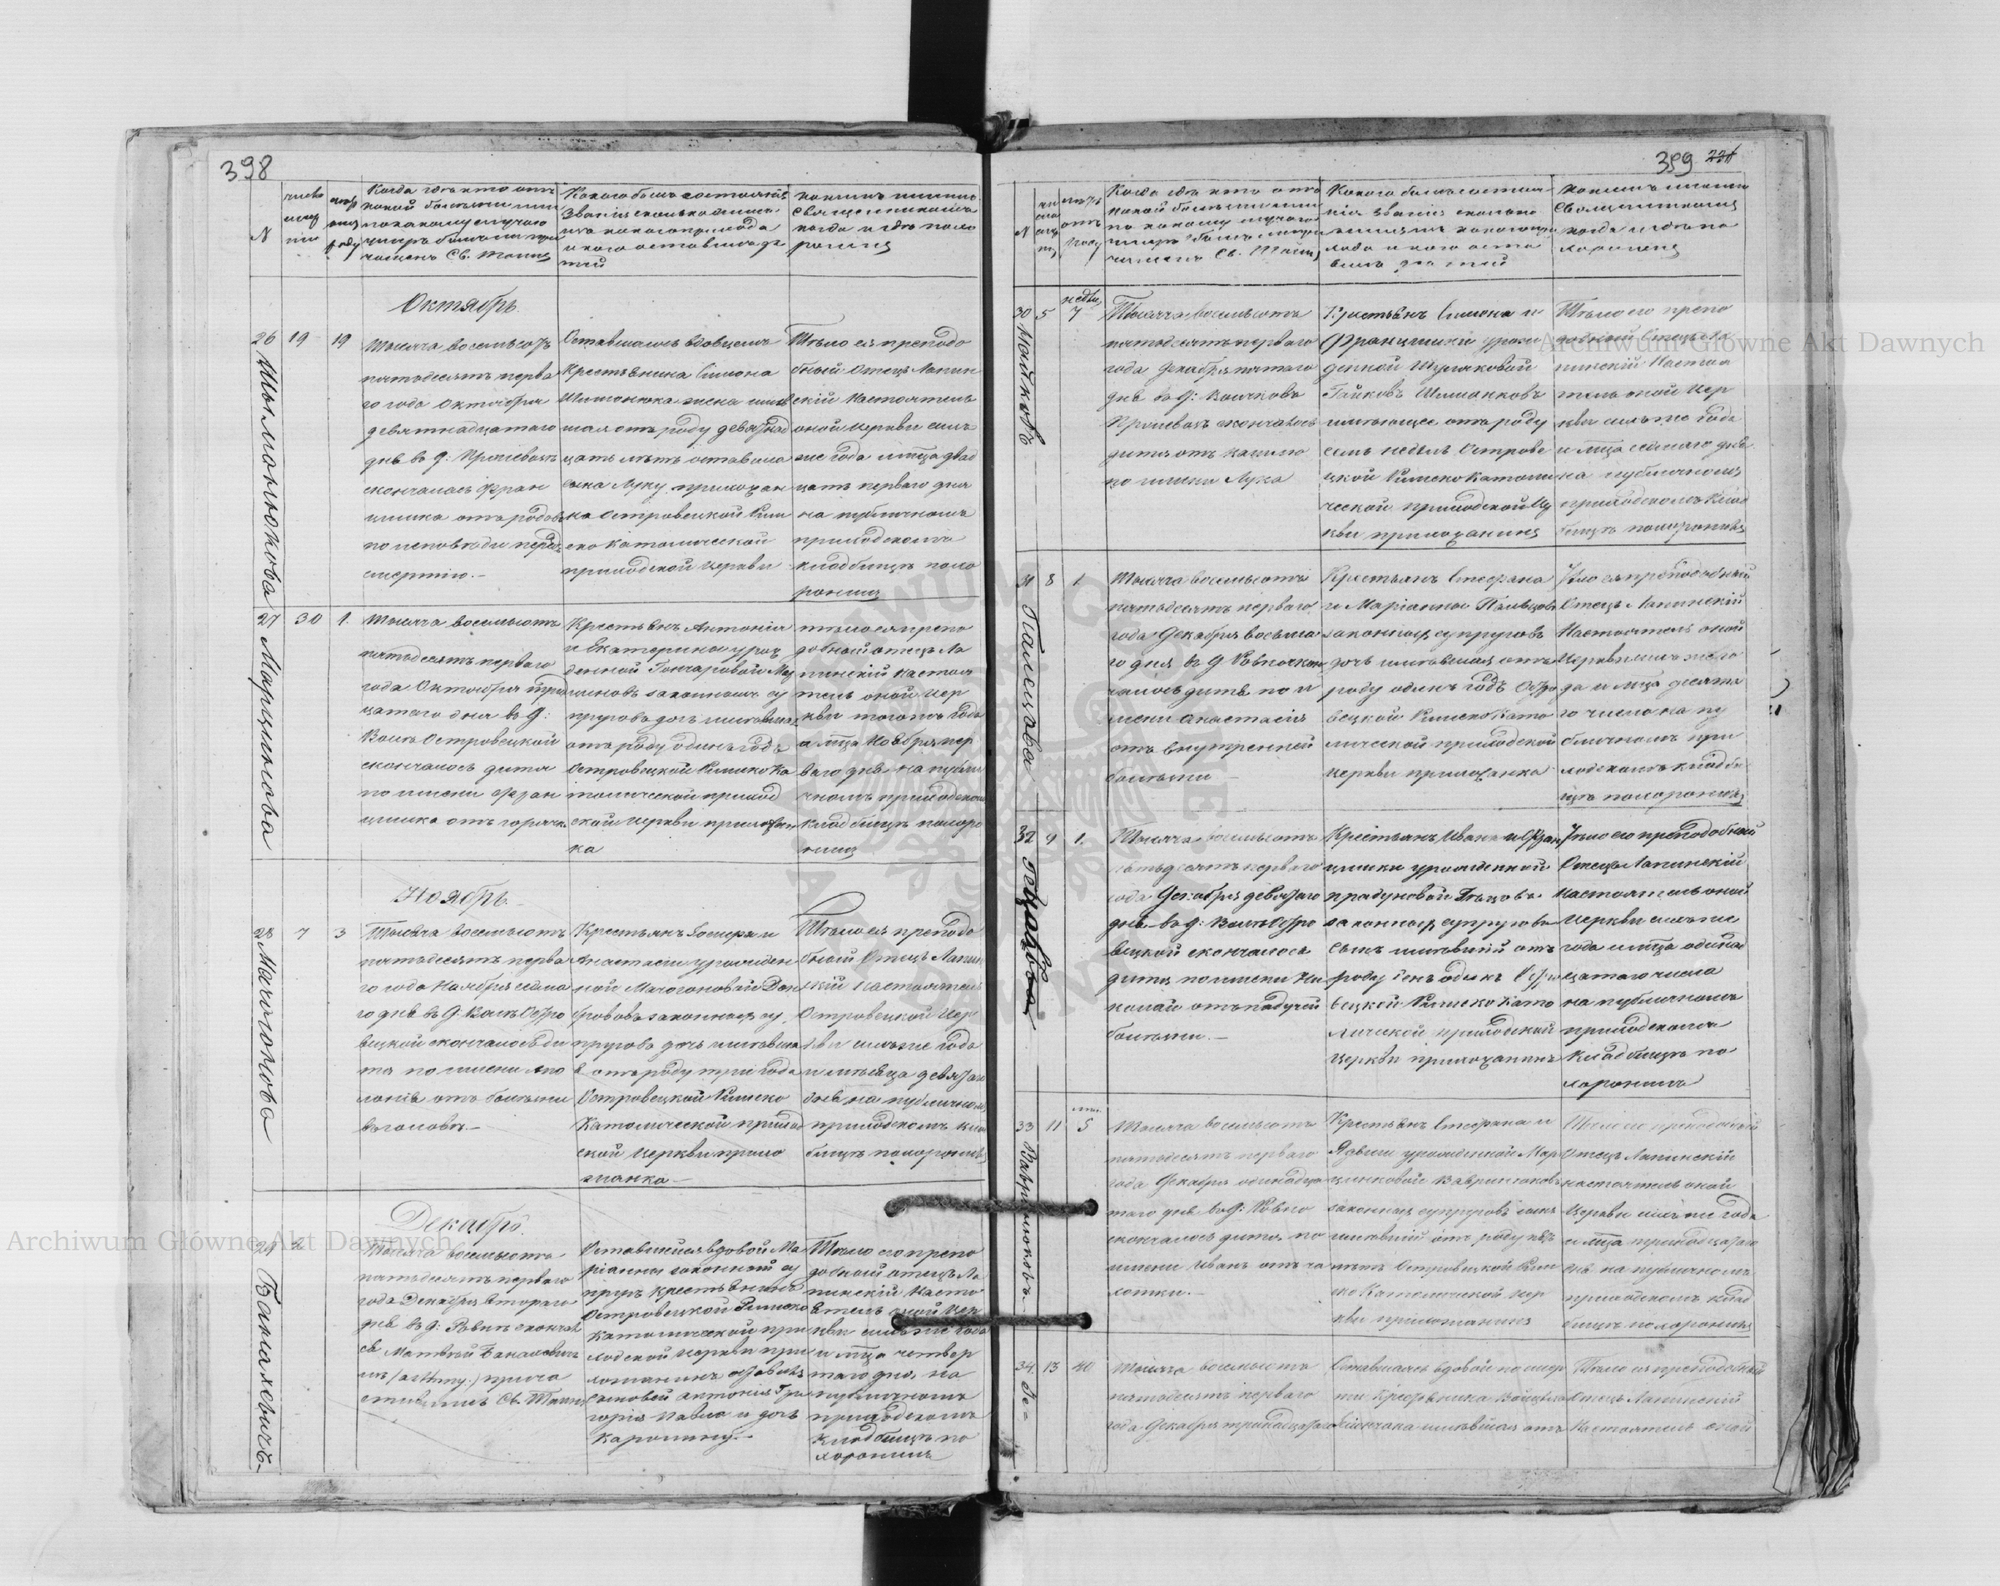 398
N
число
мсцъ
отъ
роду
Когда гдѣ кто отъ
какой болѣзни или
по какому случаю
умеръ былъ ли при
чащенъ Св. Таинъ
Какого былъ состоянія
званія сколько лѣтъ
изъ какого прихода
и кого оставилъ дѣ
тей
какимъ именно
Священникомъ
когда и гдѣ похо
роненъ
Октябрь
26
19
19
Тысяча восемьсотъ
пятьдесятъ перва
го года Октября
девятнадцатаго
дня въ д:
скончалась Фран
цишка отъ родовъ
по исповѣди предъ
смертію.-
Оставшаяся вдовцемъ
Крестьянина Симона
Шимонюка жена имѣв
шая отъ роду девятнад
цать лѣтъ оставила
сына Луку прихожан
ка Островецкой Рим
ско Католической
приходской церкви
Тѣло ея преподо
бный Отецъ Лапин
скій Настоятель
оной церкви сегожъ
же года мца двад
цать перваго дня
на публичномъ
приходскомъ
кладбищѣ похо
ронилъ
27
30
1.
Марцинюкова
Тысяча восемьсотъ
пятьдесятъ перваго
года Октября трид
цатаго дня въ д:
Воли Островецкой
скончалось дитя
по имени Фран
цишка отъ горячк
Крестьянъ Антонія
и Екатерины урож
денной Гончаровой Мар
циновъ законныхъ су
пруговъ дочь имѣвшая
отъ роду одинъ годъ
Островецкой Римско Ка
толической приход
ской церкви прихожан
ка
тѣло ея препо
добный отецъ Ла
пинскій Настоя
тель оной цер
кви того же года
а мца Ноября пер
ваго дня на публи
чномъ приходскомъ
кладбищѣ похоро
нилъ
Ноябрь
28
7
3
Мачогонова
Тысяча восемьсотъ
пятьдесятъ перва
го года Ноября седма
го дня въ д Воли Остро
вецкой скончалось ди
тя по имени Апо
лонія отъ болѣзни
въ головѣ.-
Крестьянъ Іосифа и
Анастасіи урожден
ной Мачогоновой Дом
бровъ законныхъ су
пруговъ дочь имѣвша
я отъ роду три года
Островецкой Римско
Католической приход
ской Церкви прихо
жанка-
Тѣло ея преподо
бный Отецъ Лапин
скій Настоятель
Островецкой Цер
кви сегоже года
и мѣсяца девятаго
дня на публичномъ
приходскомъ клад
бищѣ похоронилъ
Декабрь
29
2
Банаховичъ.
Тысяча восемьсотъ
пятьдесятъ перваго
года Декабря втораго
дня въ д: Ровин скончал
ся Матвѣй Банахович
отъ (asthmy) прича
стившись Св. Таинъ
Оставшійся вдовой Ма
ріанны законной су
пругъ Крестьянинъ
Островецкой Римско
Католической при
ходской церкви при
хожанинъ оставивъ
сыновей Антонія Гри
горія Павла и дочь
Каролину.-
Тѣло его препо
добный отецъ Ла
пинскій Насто
ятель оной Цер
кви сегоже года
и мца четвер
таго дня на
публичномъ
приходскомъ
Кладбищѣ по
хоронилъ
399
N
Когда гдѣ кто отъ
какой болѣзни или
по какому случаю
умеръ былъ ли при
чащенъ Св. Таинъ
Какого былъ состоя
нія званія сколько
какимъ именно
Священникомъ
когда и гдѣ по
хороненъ
30
5
недѣль
7
Тысяча восемьсотъ
пятьдесятъ перваго
года Декабря пятаго
дня въ д:
скончалось
дитя отъ кашлю
по имени Лука
Крестьянъ Симона и
Францишки урож
денной
имѣющее отъ роду
семь недѣль Острове
цкой Римско Католи
ческой приходской Це
ркви прихожанинъ
Тѣло его препо
добный Отецъ Ла
пинскій Настоя
тель оной Цер
кви сегоже года
и мца седмаго дня
на публичномъ
приходскомъ Клад
бищѣ похоронилъ
31
8
1.
Палецова
Тысяча восемьсотъ
пятьдесятъ перваго
года Декабря восьма
го дня въ д
чалось дитя по и
мени Анастасія
отъ внутренней
болѣзни -
Крестьянъ Стефана
и Маріанны Палецовъ
законныхъ супруговъ
дочь имѣвшая отъ
роду одинъ годъ Остро
вецкой Римско Като
лической приходской
церкви прихожанка
Тѣло ея преподобный
Отецъ Лапинскій
Настоятель оной
Церкви сегоже го
да и мца десята
го числа на пу
бличномъ при
ходскомъ кладби
щѣ похоронилъ
32
9
1.
Тысяча восемьсотъ
пятьдесятъ перваго
года Декабря девятаго
дня въ д: Воли Остро
вецкой скончалося
дитя по имени Ни
колай отъ падучей
болѣзни.-
Крестьянъ Ивана и Фран
цишки урожденной
законныхъ супруговъ
сынъ имѣвшій отъ
роду день одинъ Остро
вецкой Римско Като
лической приходской
Церкви прихожанинъ
Тѣло его преподобный
Отецъ Лапинскій
Настоятель оной
Церкви сегоже
года и мца одинна
цатаго числа
на публичномъ
приходскомъ
Кладбищѣ по
хоронилъ
33
11
5
Вавринюкъ.
Тысяча восемьсотъ
пятьдесятъ перваго
года Декабря одинадца
таго дня въ д: Ровно
скончалось дитя по
имени Иванъ отъ ча
хотки.-
Крестьянъ Стефана и
Ядвиги урожденной Мар
цинковой Вавринюковъ
законныхъ супруговъ сынъ
имѣвшій отъ роду пять
лѣтъ Островецкой Рим
ско Католической Цер
кви прихожанинъ
Тѣло его преподобный
Отецъ Лапинскій
настоятель оной
Церкви сегоже года
и мца тринадцатаго
дня на публичномъ
приходскомъ клад
бищѣ похоронилъ
34
13
40
Тысяча восемьсотъ
пятьдесятъ перваго
года Декабря тринадцатаго
Оставшаяся вдовой по смер
ти Крестьянина
имѣвшая отъ
Тѣло ея преподобный
Отецъ Лапинскій
Настоятель оной
Archiwum Główne Akt Dawnych
Archiwum Główne Akt Dawnych